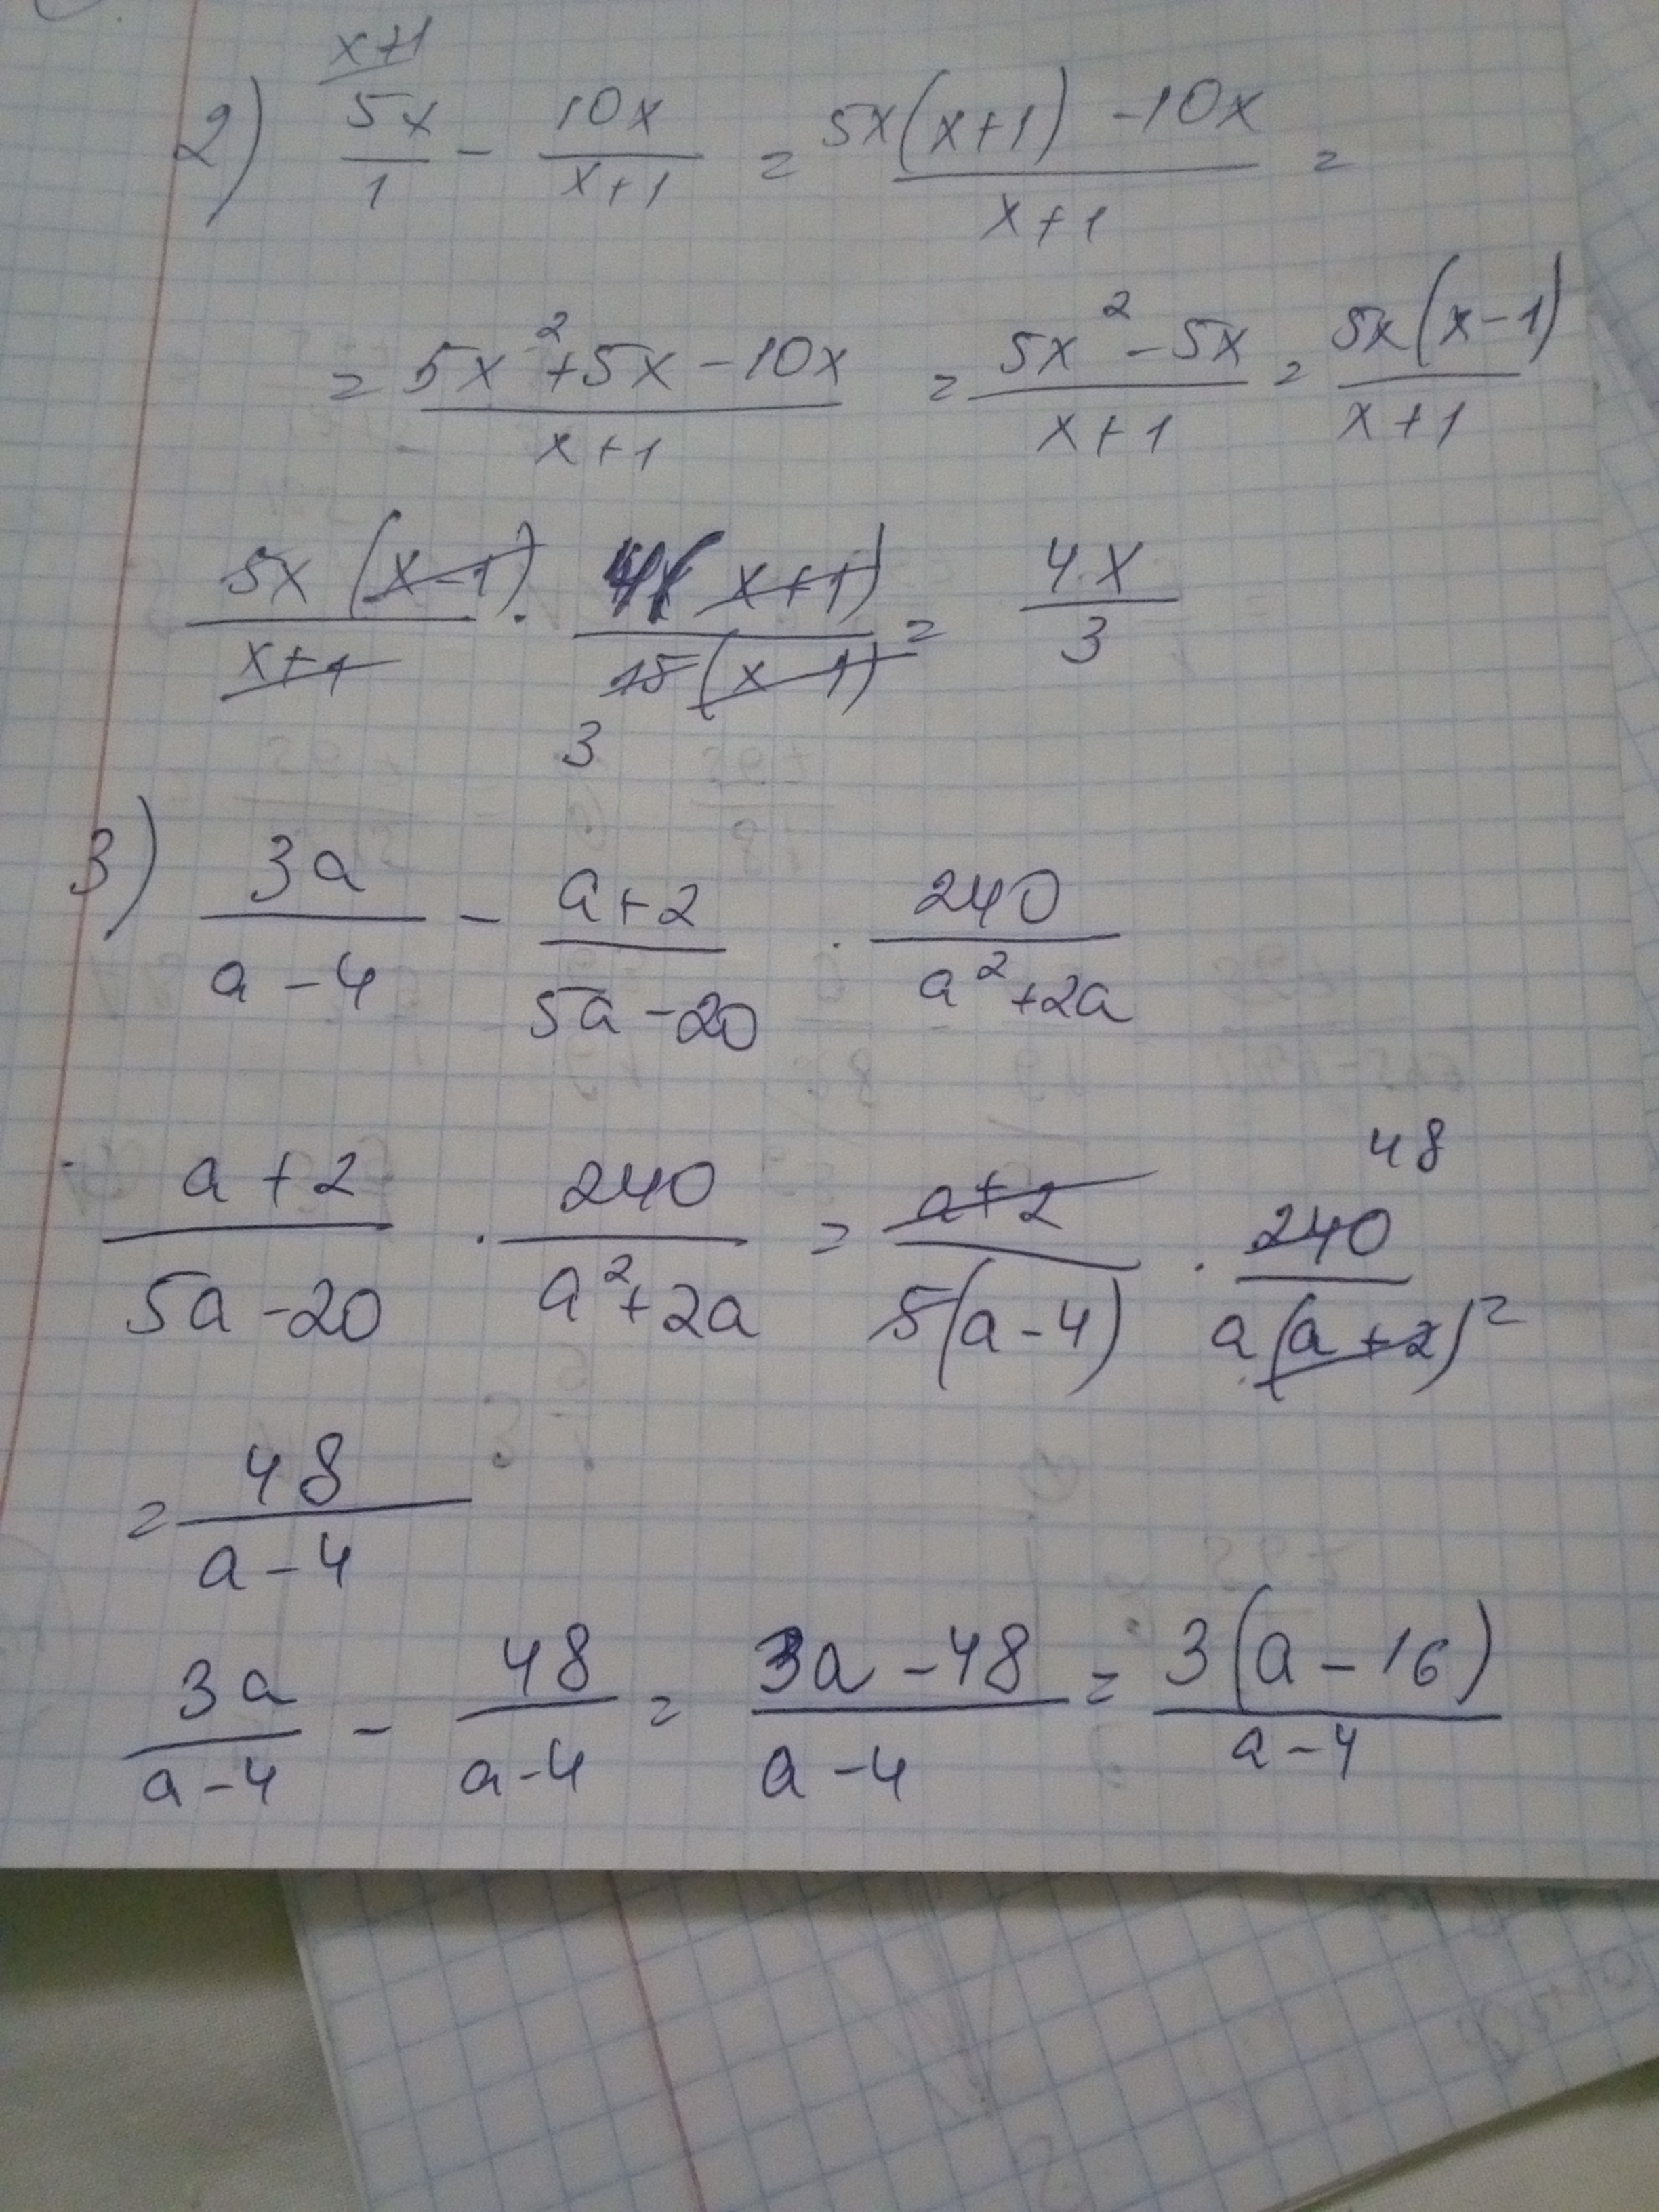 x+1
2) 5x/1 - 10x/x+1 = 5x(x+1) -10x/x+1 =
= 5x²+5x-10x/x+1 = 5x²-5x/x+1 = 5x(x-1)/x+1
5x(x-1)/x+1 · 4(x+1)/15(x-1) = 4x/3
3
3) 3a/a-4 - a+2/5a-20 · 240/a²+2a
48
a+2/5a-20 · 240/a²+2a = a+2/5(a-4) · 240/a(a+2) =
= 48/a-4
3a/a-4 - 48/a-4 = 3a-48/a-4 = 3(a-16)/a-4